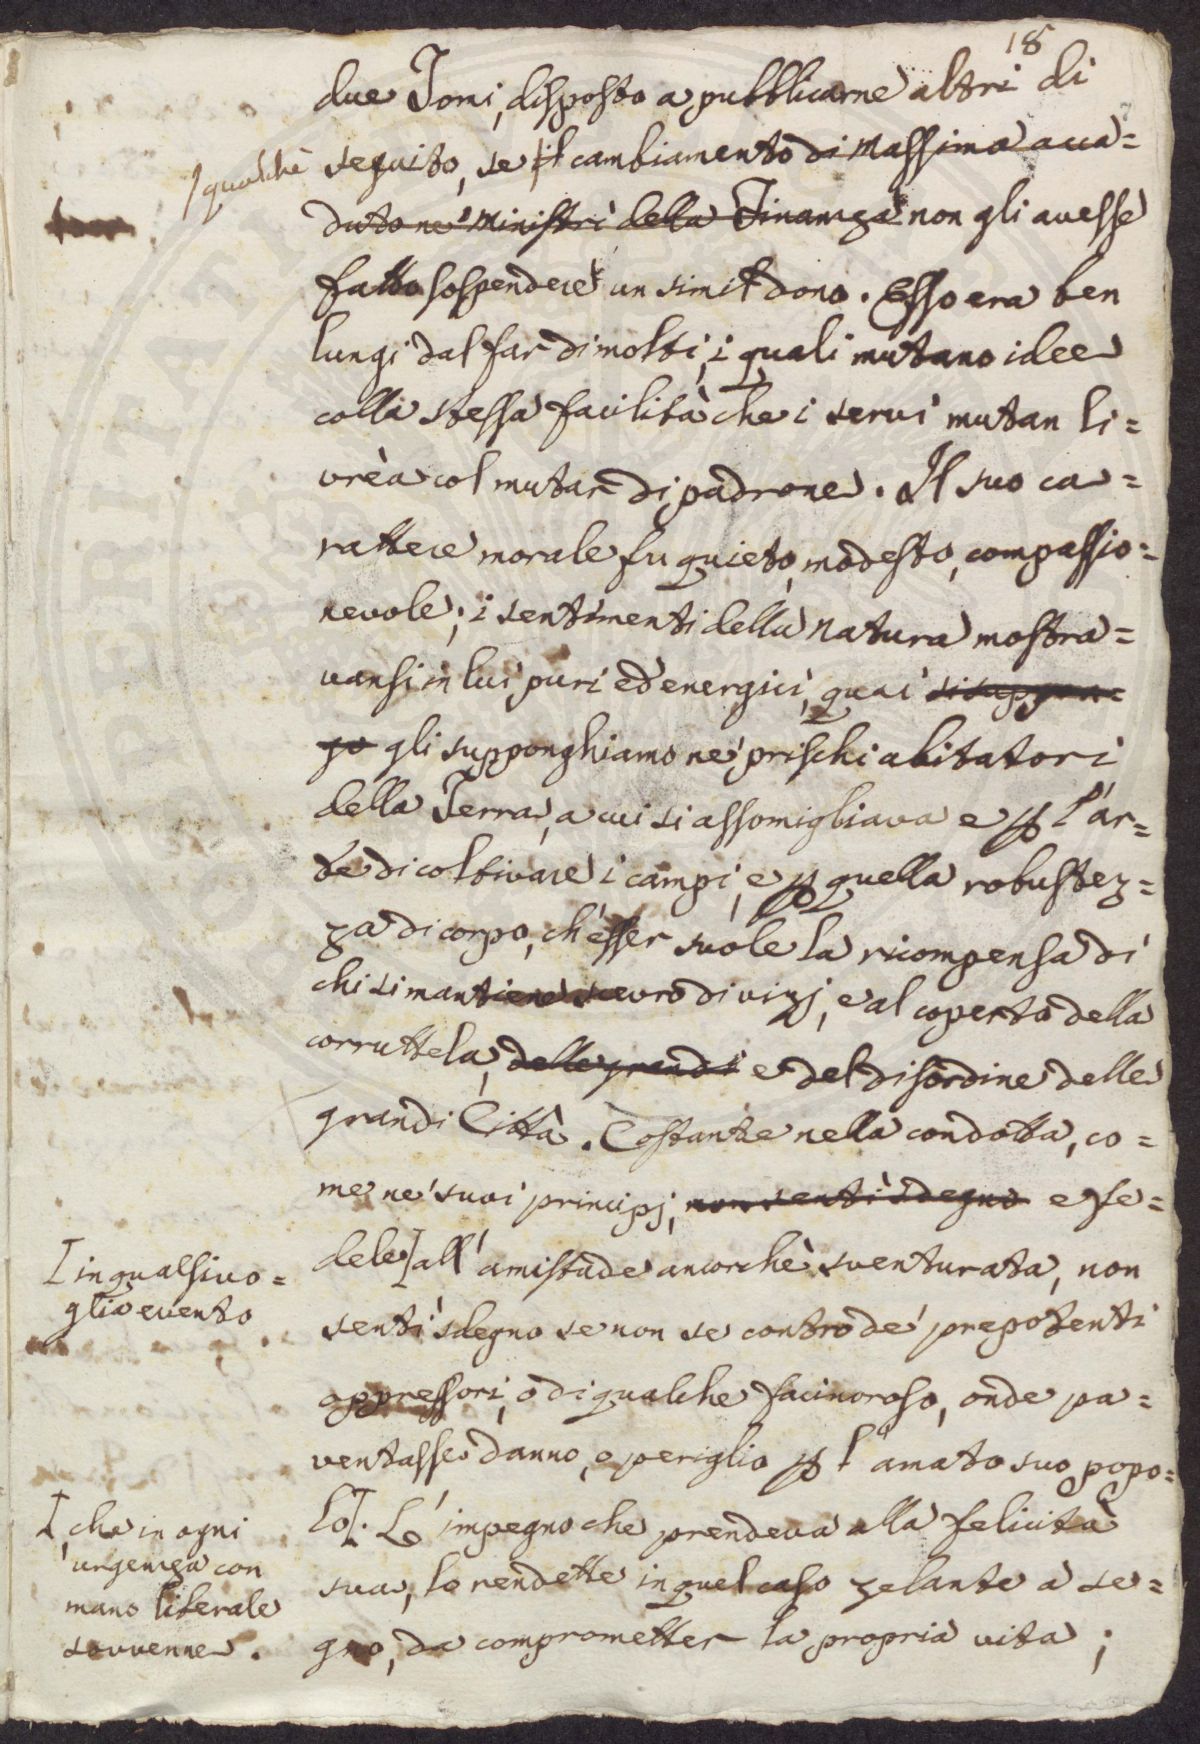 18
due Tomi, disposto a pubblicarne altri di
qualche
seguito, se il cambiamento di Massima acca=
duto ne' Ministri della Finanza non gli avesse
fatto sospendere un simil dono. Esso era ben
lungi dal far di molti, i quali mutano idee
colla stessa facilità che i servi mutan li=
vrèa col mutar di padrone. Il suo ca=
rattere morale fu quieto, modesto, compassio=
nevole; i sentimenti della Natura mostra=
vansi in lui puri ed energici, quai si suppon=
go gli supponghiamo ne' prischi abitatori
della Terra, a cui si assomigliava e p l'ar=
te di coltivare i campi, e p quella robustez=
za di corpo, ch'esser suole la ricompensa di
chi si mantiene scevro di vizj, e al coperto della
corruttela, delle grandi e del disordine delle
grandi Città. Costante nella condotta, co=
me ne' suoi principj, non sentì sdegno e fe=
dele all'amistade ancorchè sventurata, non
in qualsivo=
glia evento
sentì sdegno se non se contro de' prepotenti
oppressori, o di qualche facinoroso, onde pa=
ventasse danno, o periglio p l'amato suo popo=
lo. L'impegno che prendeva alla felicità
, che in ogni
urgenza con
mano liberale
sovvenne.
sua, lo rendette in quel caso zelante a se=
gno, da comprometter la propria vita;